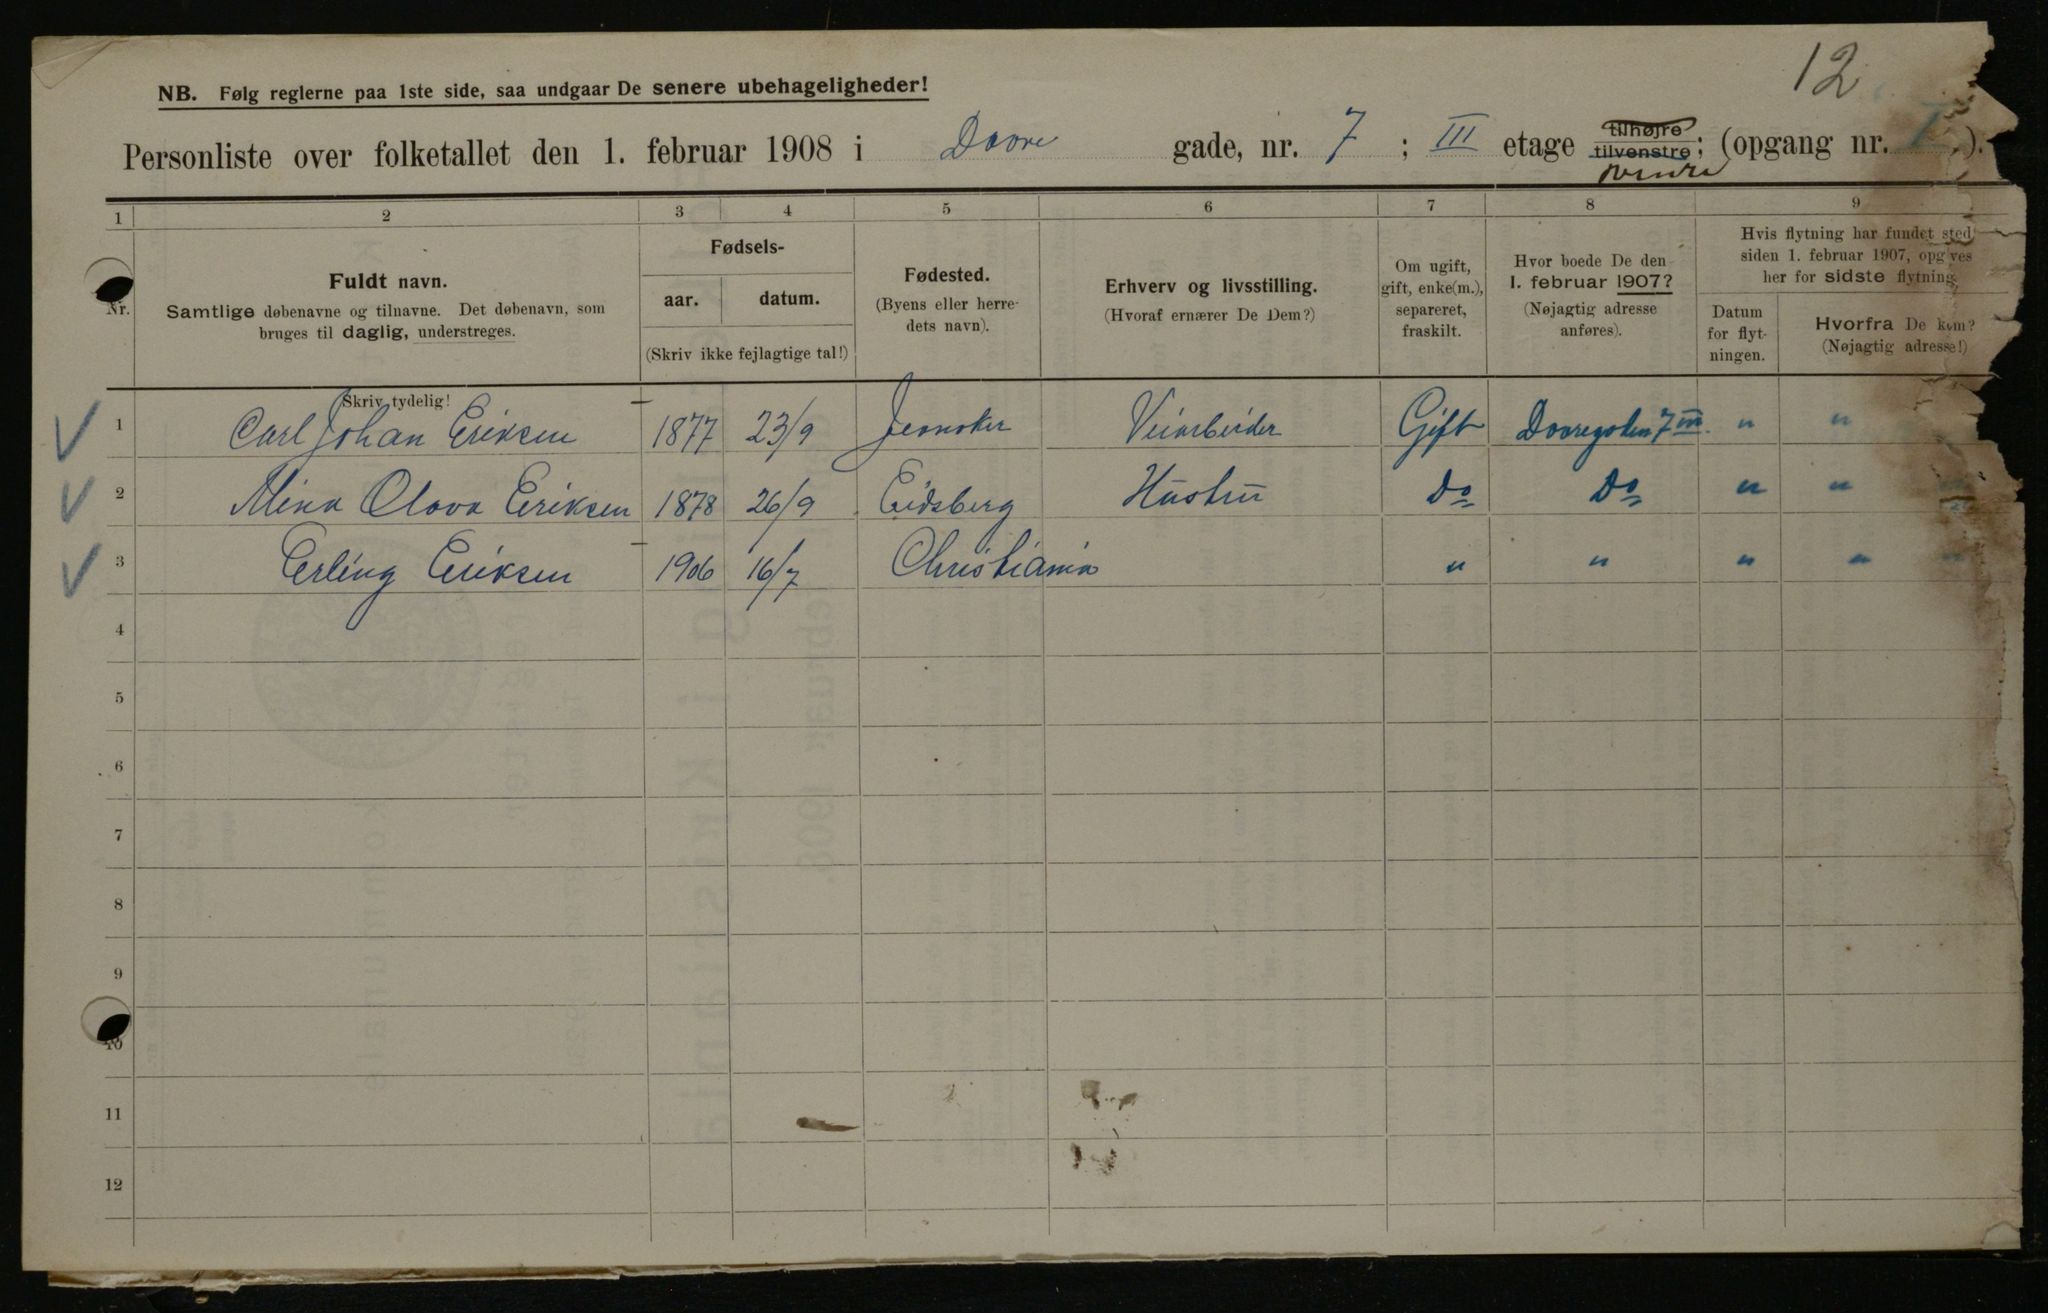 12
NB. Følg reglerne paa 1ste side, saa undgaar De senere ubehageligheder!
Personliste over folketallet den 1. februar 1908 i Dovre gade, nr. 7; III etage tilhøjre tilvenstre; (opgang nr. I).
1 2 3 4 5 6 7 8 9
Nr.
Fuldt navn.
Samtlige døbenavne og tilnavne. Det døbenavn, som
bruges til daglig, understreges.
Fødsels-
aar. datum.
(Skriv ikke fejlagtige tal!)
Fødested.
(Byens eller herre-
dets navn).
Erhverv og livsstilling.
(Hvoraf ernærer De Dem?)
Om ugift,
gift, enke(m.),
separeret,
fraskilt.
Hvor boede De den
1. februar 1907?
(Nøjagtig adresse
anføres).
Hvis flytning har fundet sted
siden 1. februar 1907, opgives
her for sidste flytning
Datum
for flyt-
ningen.
Hvorfra De kom?
(Nøjagtig adresse!)
Skriv tydelig!
1 Carl Johan Eriksen 1877 23/9 Veiarbeider Gift Dovregaten 7 III. " "
2 Mina Olava Eriksen 1878 26/9 Eidsberg Hustru Do Do " " "
3 Erling Eriksen 1906 16/7 Christiania " " " " "
4
5
6
7
8
9
10
11
12